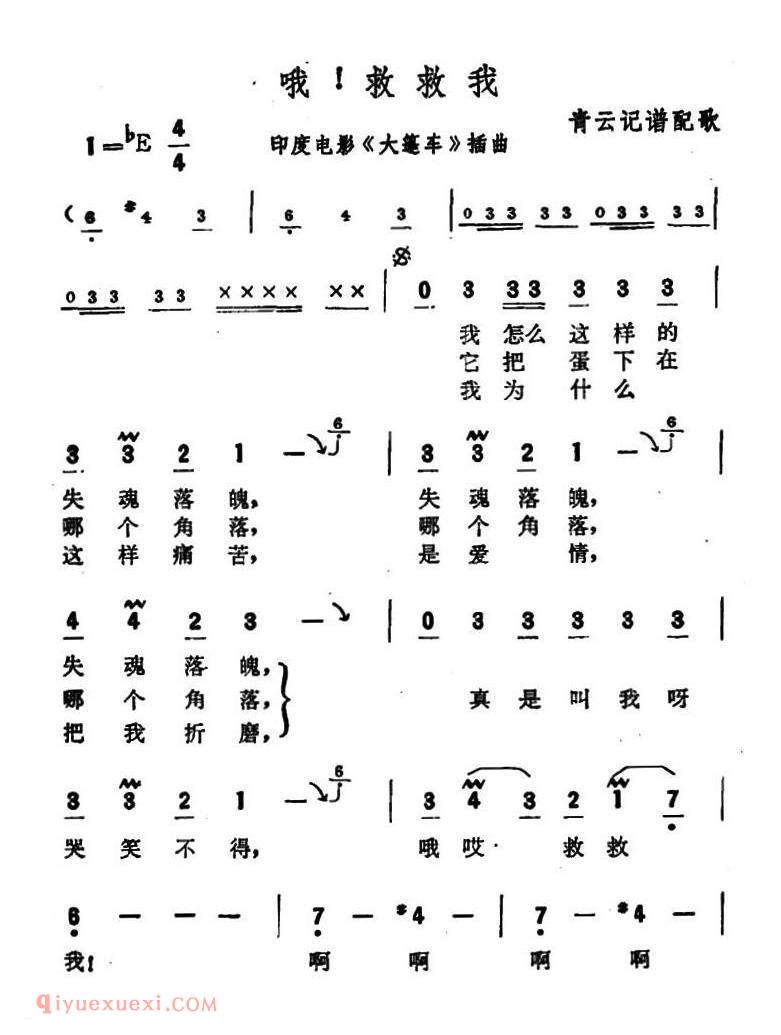 哦！救救我
1=♭E 4/4 印度电影《大篷车》插曲 青云记谱配歌
( 6 #4 3 | 6 4 3 | 0 3 3 3 3 0 3 3 3 3 |
0 3 3 3 3 × × × × × × | 0 3 3 3 3 3 3 |
我怎么这样的
它把蛋下在
我为什么
3 3 2 1 — 6 | 3 3 2 1 — 6 |
失魂落魄， 失魂落魄，
哪个角落， 哪个角落，
这样痛苦， 是爱情，
4 4 2 3 — | 0 3 3 3 3 3 |
失魂落魄，
哪个角落， 真是叫我呀
把我折磨，
3 3 2 1 — 6 | 3 4 3 2 1 7 |
哭笑不得， 哦哎·救救
6 — — — | 7 — #4 — | 7 — #4 — |
我！ 啊 啊 啊 啊
Qiyuexuexi.com®